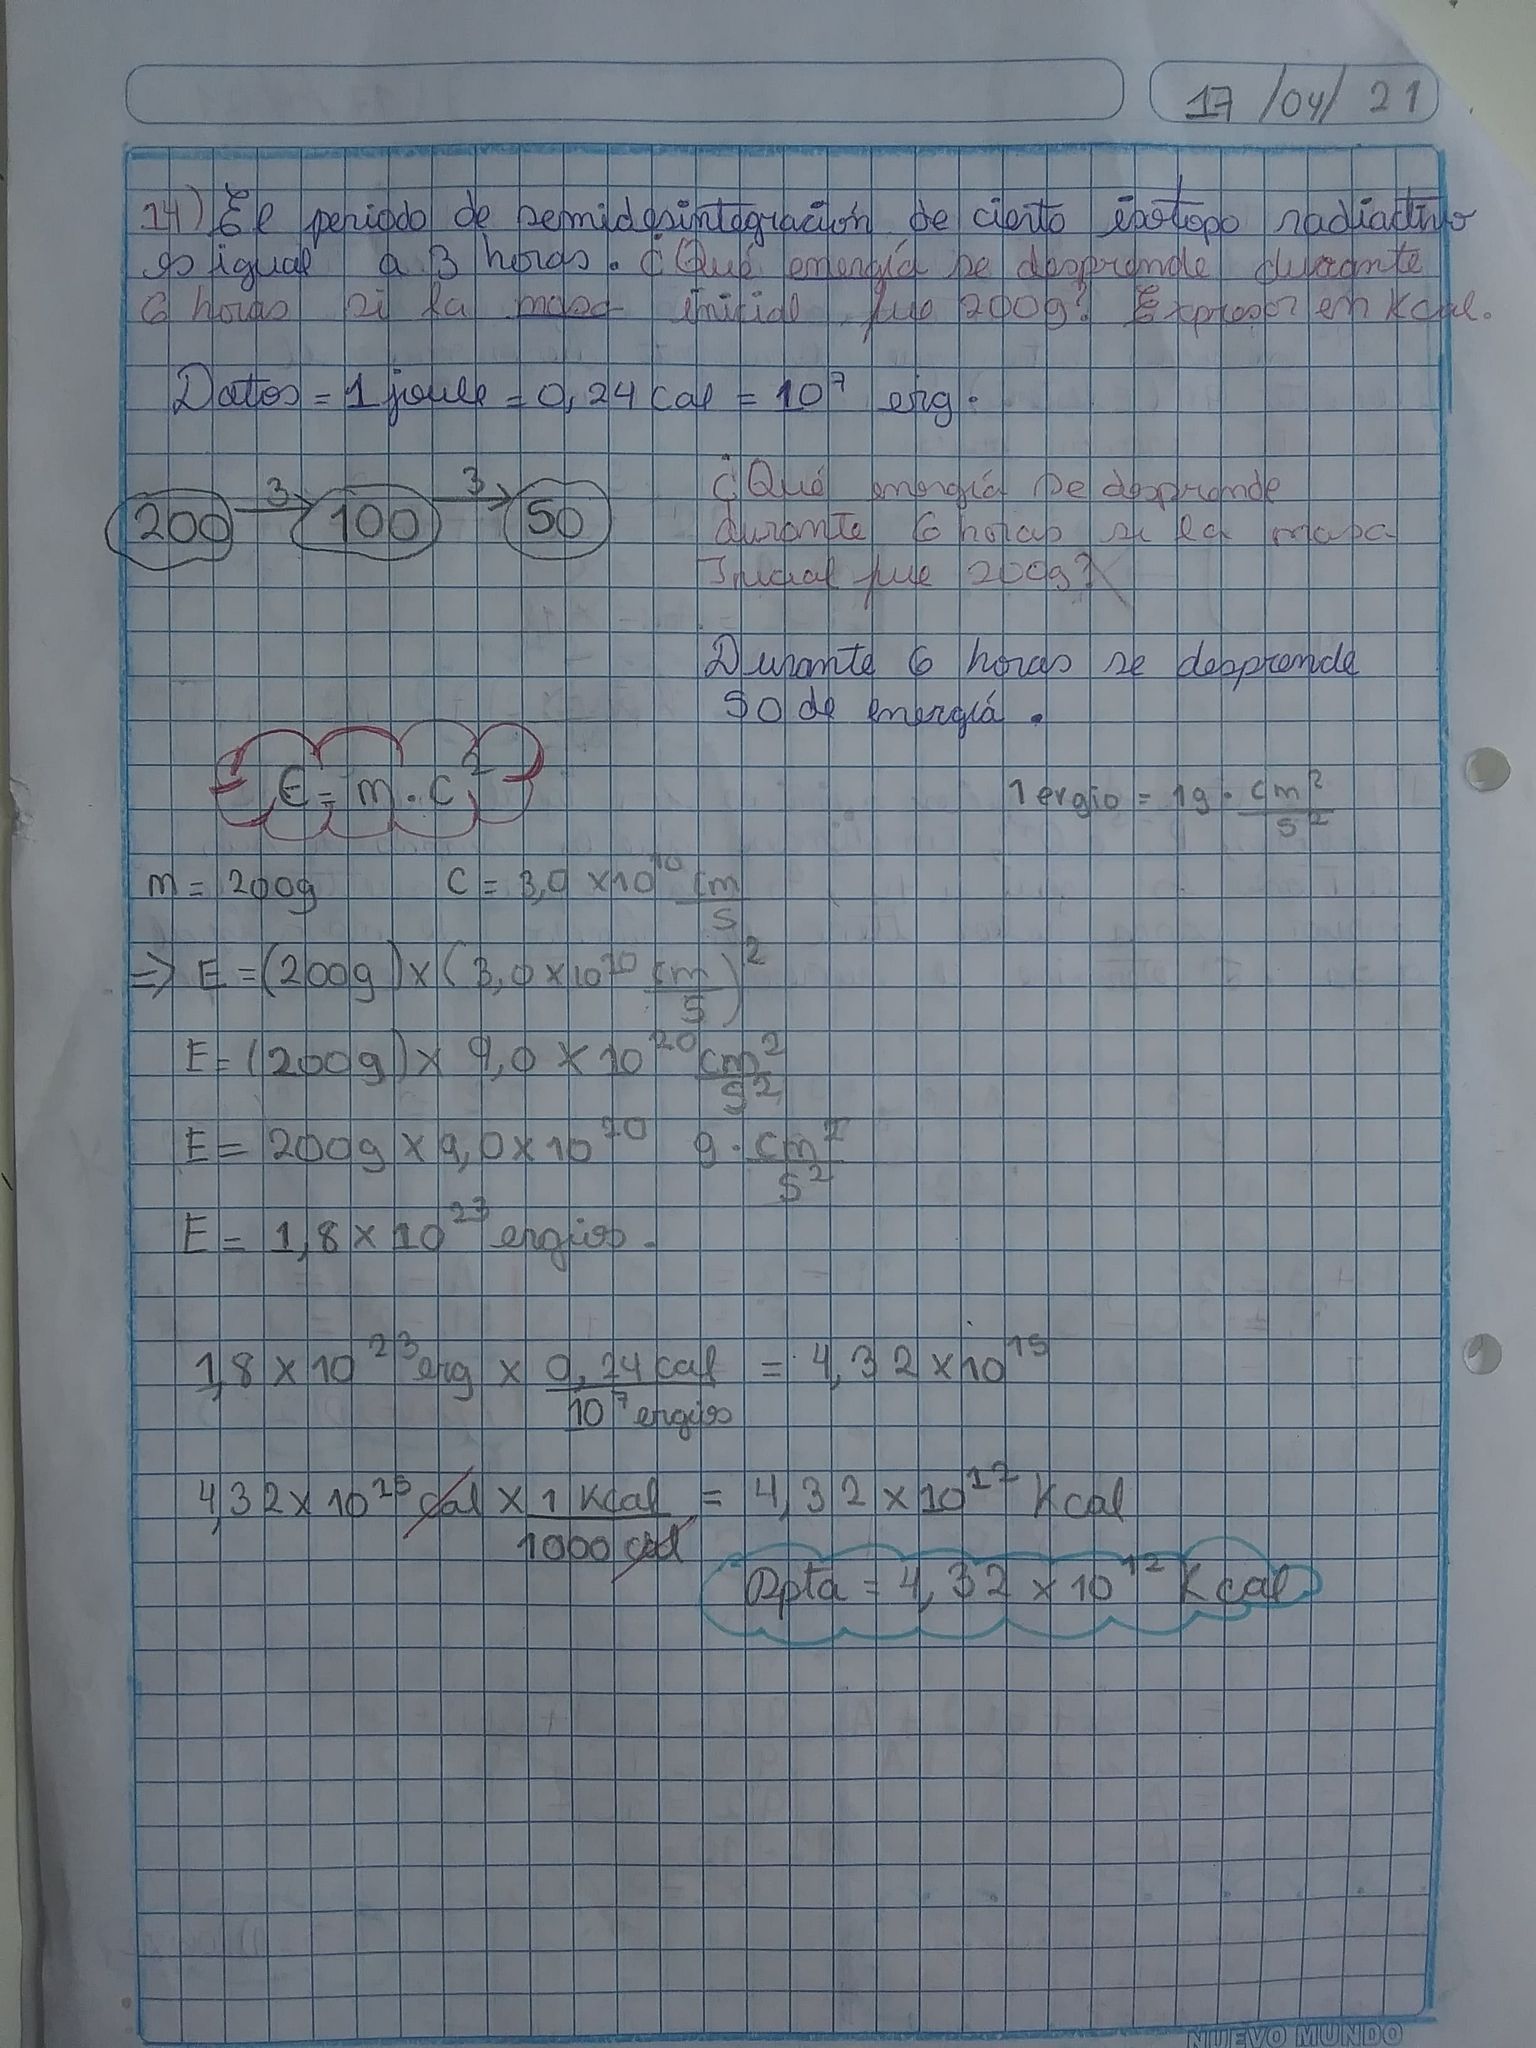 17/04/21
14) El periodo de semidesintegración de cierto isótopo radiactivo
es igual a 3 horas. ¿Qué energía se desprende durante
6 horas si la masa inicial fue 200g? Expresar en Kcal.
Datos = 1 joule = 0,24 cal = 10⁷ erg.
200 →3 100 →3 50
¿Qué energía se desprende
durante 6 horas si la masa
Inicial fue 200g?
Durante 6 horas se desprende
50 de energía.
E = m · c²
1 ergio = 1g · cm²/s²
m = 200g C = 3,0 x10¹⁰ cm/s
=> E = (200g) x (3,0 x 10¹⁰ cm/s)²
E = (200g) x 9,0 x 10²⁰ cm²/s²
E = 200g x 9,0 x 10²⁰ g · cm²/s²
E = 1,8 x 10²³ ergios.
1,8 x 10²³ erg x 0,24 cal/10⁷ ergios = 4,32 x 10¹⁵
4,32 x 10¹⁵ cal x 1 Kcal/1000 cal = 4,32 x 10¹² Kcal
Rpta = 4,32 x 10¹² Kcal
NUEVO MUNDO